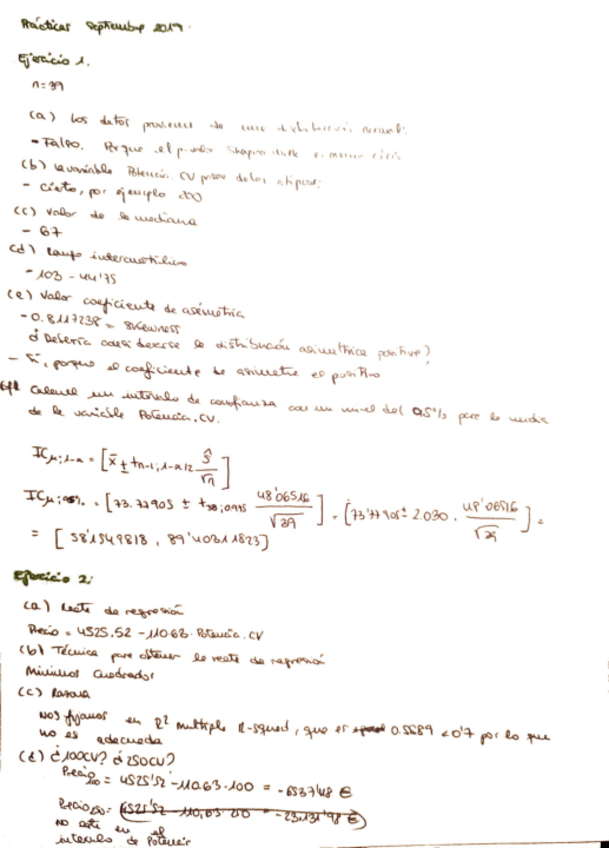 Prácticas Septiembre 2019.
Ejercicio 1.
n=39
(a) Los datos provienen de una distribución normal:
- Falso. Porque el p-valor Shapiro-Wilk
(b) La variable Potencia.CV posee datos atípicos:
- Cierto, por ejemplo 200
(c) Valor de la mediana
- 67
(d) Rango intercuartílico
- 103 - 44'75
(e) Valor coeficiente de asimetría
- 0.8117238 = Skewness
¿Debería considerarse la distribución asimétrica positiva?
- Sí, porque el coeficiente de asimetría es positivo
Calcule un intervalo de confianza con un nivel del 95% para la media
de la variable Potencia.CV.
ICμ;1-α = [x̄ ± tn-1;1-α/2 ŝ/√n]
ICμ;95% = [73.77905 ± t38;0.975 48'06516/√39] = [73'77905 ± 2.030 · 48'06516/√39] =
= [58'1549818, 89'40311823]
Ejercicio 2:
(a) Recta de regresión
Precio = 4525.52 - 110.63 · Potencia.CV
(b) Técnica para obtener la recta de regresión
Mínimos Cuadrados
(c) Razona
Nos fijamos en R² multiple R-squared, que es 0.5689 < 0'7 por lo que
no es adecuada
(d) ¿100CV? ¿250CV?
Precio100 = 4525'52 - 110.63 · 100 = -6537'48 €
Precio250 = 4525'52 - 110,63 · 250 = -23131'98 €
No está en el
intervalo de Potencia